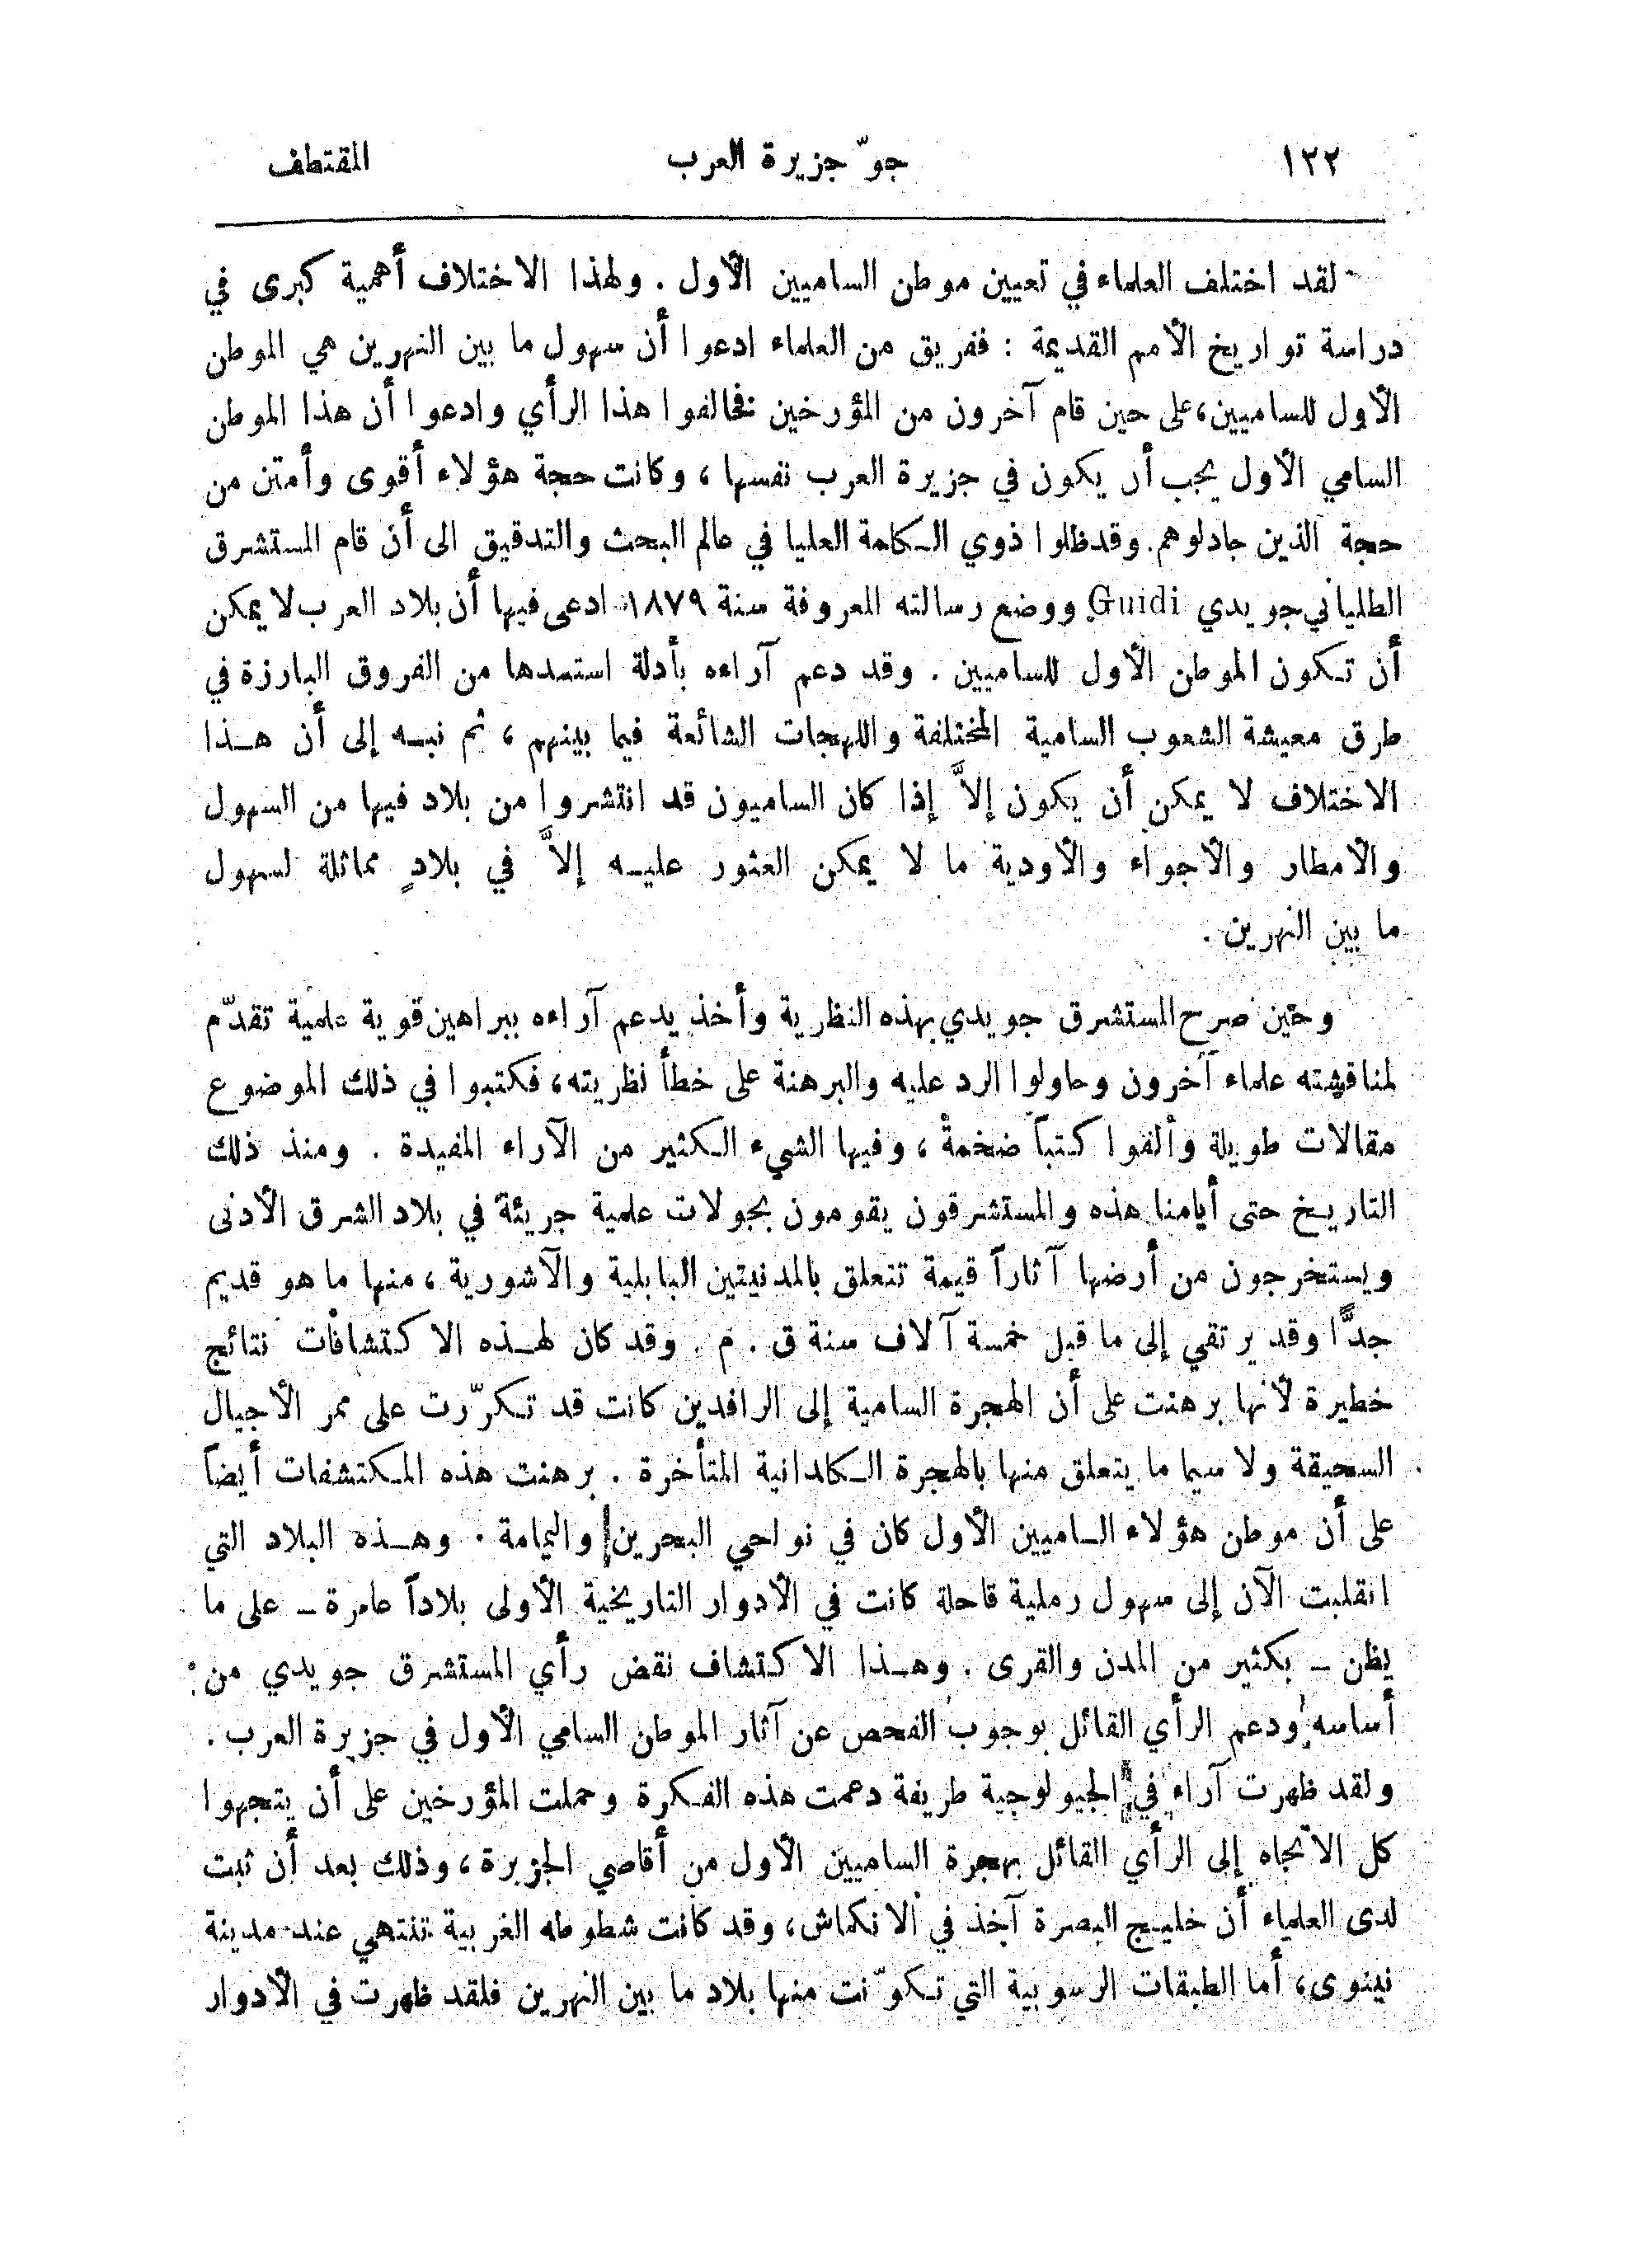 ١٢٢ جوّ جزيرة العرب المقتطف
لقد اختلف العلماء في تعيين موطن الساميين الأول . ولهذا الاختلاف أهمية كبرى في
دراسة تواريخ الأمم القديمة : ففريق من العلماء ادعوا أن سهول ما بين النهرين هي الموطن
الأول للساميين، على حين قام آخرون من المؤرخين نخالفوا هذا الرأي وادعوا أن هذا الموطن
السامي الأول يجب أن يكون في جزيرة العرب نفسها ، وكانت حجة هؤلاء أقوى وأمتن من
حجة الذين جادلوهم. وقد ظلوا ذوي الكلمة العليا في عالم البحث والتدقيق الى أن قام المستشرق
الطلياني جويدي Guidi ووضع رسالته المعروفة سنة ١٨٧٩ ادعى فيها أن بلاد العرب لا يمكن
أن تكون الموطن الأول للساميين . وقد دعم آراءه بأدلة استمدها من الفروق البارزة في
طرق معيشة الشعوب السامية المختلفة واللهجات الشائعة فيما بينهم ، ثم نبه إلى أن هذا
الاختلاف لا يمكن أن يكون إلاَّ إذا كان الساميون قد انتشروا من بلاد فيها من السهول
والأمطار والأجواء والأودية ما لا يمكن العثور عليه إلاَّ في بلادٍ مماثلة لسهول
ما بين النهرين .
وحين صرح المستشرق جويدي بهذه النظرية وأخذ يدعم آراءه ببراهين قوية علمية تقدّم
لمناقشته علماء آخرون وحاولوا الرد عليه والبرهنة على خطأ نظريته، فكتبوا في ذلك الموضوع
مقالات طويلة وألفوا كتباً ضخمةً ، وفيها الشيء الكثير من الآراء المفيدة . ومنذ ذلك
التاريخ حتى أيامنا هذه والمستشرقون يقومون بجولات علمية جريئة في بلاد الشرق الأدنى
ويستخرجون من أرضها آثاراً قيمة تتعلق بالمدنيتين البابلية والآشورية ، منها ما هو قديم
جدًّا وقد يرتقي إلى ما قبل خمسة آلاف سنة ق . م . وقد كان لهذه الاكتشافات نتائج
خطيرة لأنها برهنت على أن الهجرة السامية إلى الرافدين كانت قد تكرّرت على ممر الأجيال
السحيقة ولا سيما ما يتعلق منها بالهجرة الكلدانية المتأخرة . برهنت هذه المكتشفات أيضاً
على أن موطن هؤلاء الساميين الأول كان في نواحي البحرين واليمامة . وهذه البلاد التي
انقلبت الآن إلى سهول رملية قاحلة كانت في الأدوار التاريخية الأولى بلاداً عامرة – على ما
يظن – بكثير من المدن والقرى . وهذا الاكتشاف نقض رأي المستشرق جويدي من
أساسه ودعم الرأي القائل بوجوب الفحص عن آثار الموطن السامي الأول في جزيرة العرب .
ولقد ظهرت آراء في الجيولوجية طريفة دعمت هذه الفكرة وحملت المؤرخين على أن يتجهوا
كل الاتجاه إلى الرأي القائل بهجرة الساميين الأول من أقاصي الجزيرة ، وذلك بعد أن ثبت
لدى العلماء أن خليج البصرة آخذ في الانكماش، وقد كانت شطوطه الغربية تنتهي عند مدينة
نينوى، أما الطبقات الرسوبية التي تكوّنت منها بلاد ما بين النهرين فلقد ظهرت في الأدوار